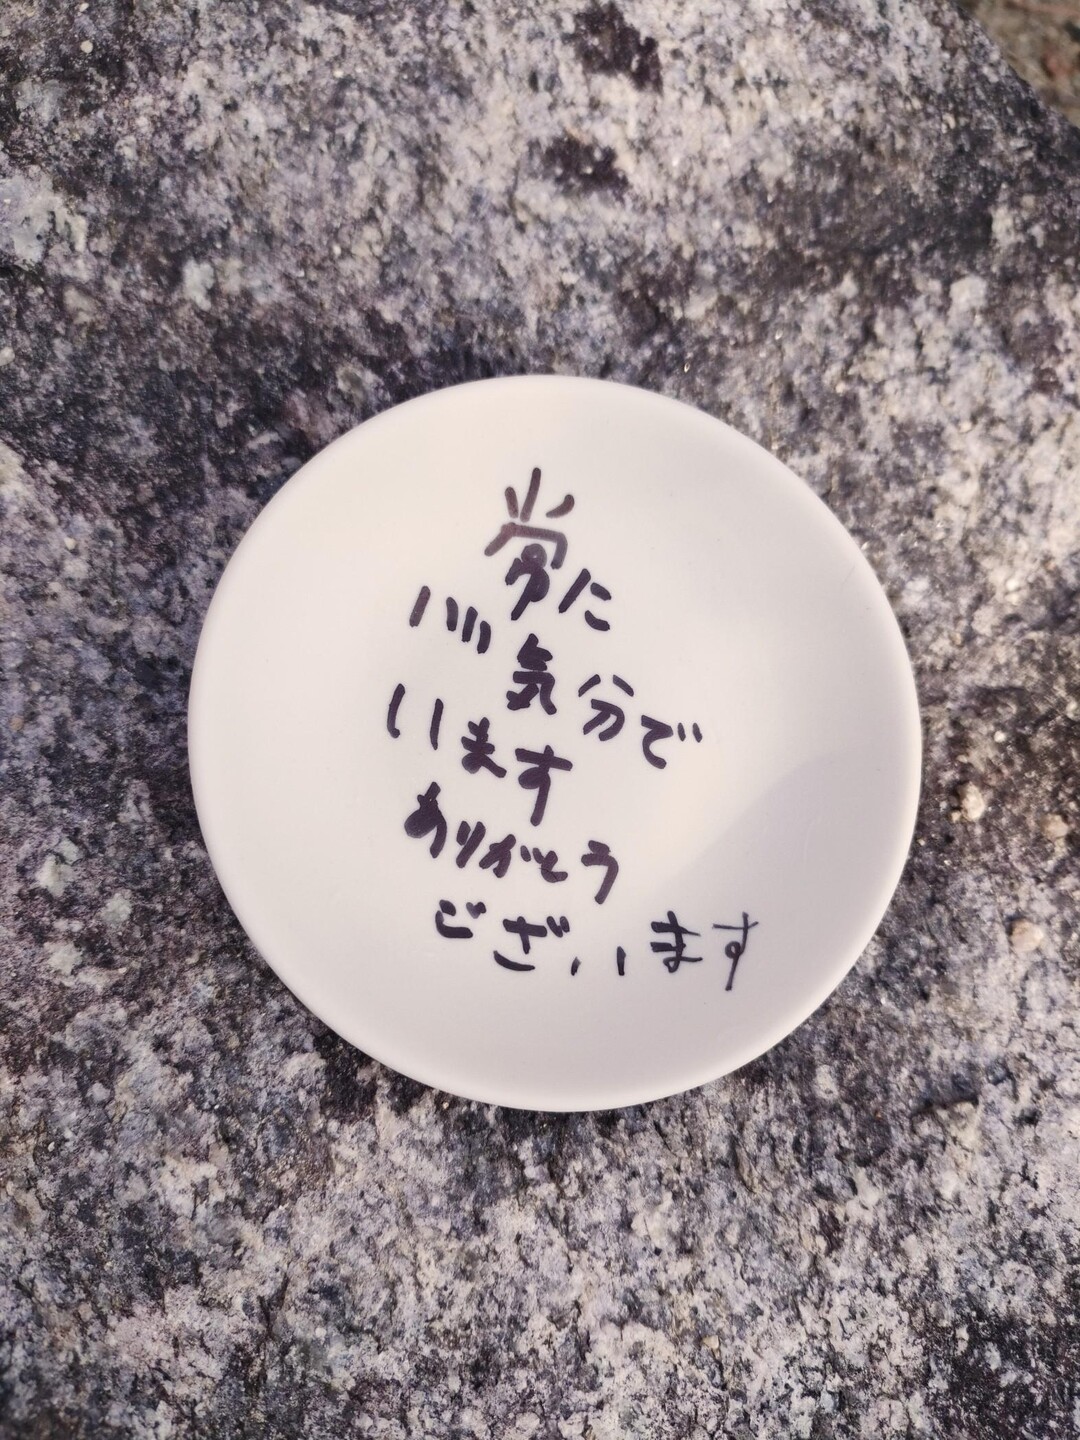 常に
いい気分で
います
ありがとう
ございます